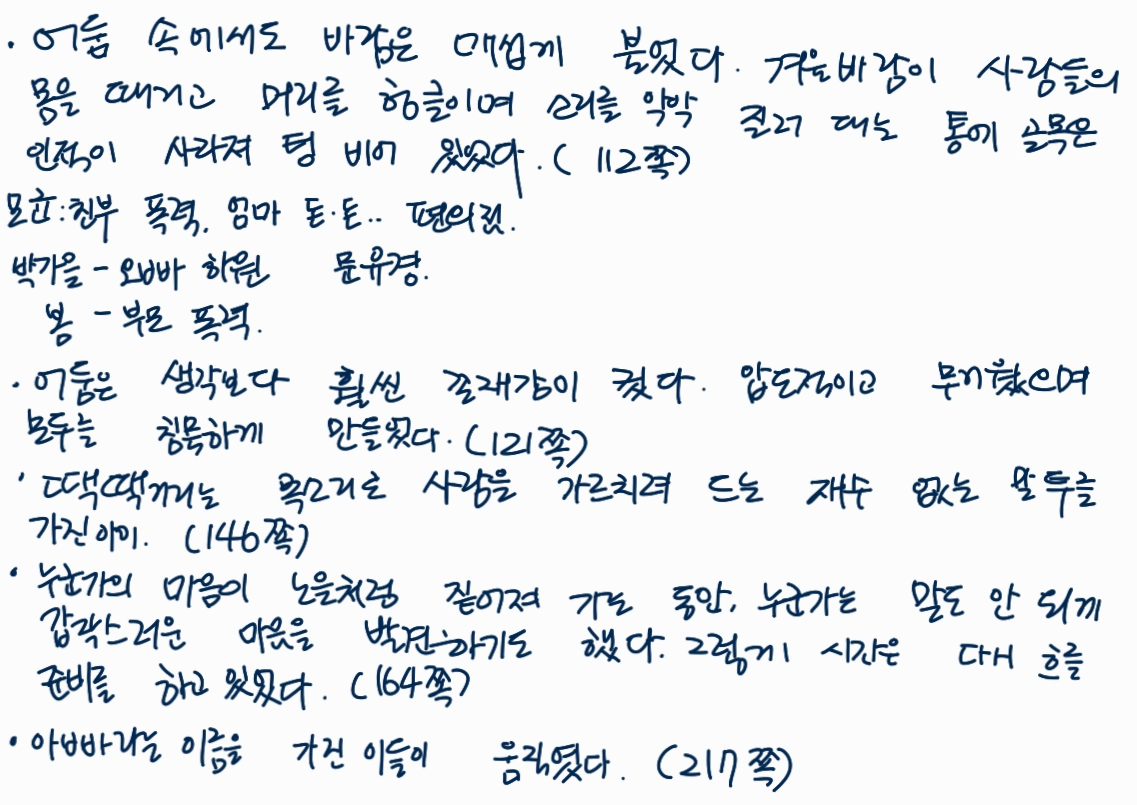 · 어둠 속에서도 바람은 매섭게 불었다. 겨울바람이 사람들의
몸을 때리고 머리를 헝클이며 소리를 악악 질러 대는 통에 골목은
인적이 사라져 텅 비어 있었다. (112쪽)
모균: 친부 폭력. 엄마 돈·돈.. 편의점.
박가을 - 오빠 하원 문유경.
봄 - 부모 폭력.
· 어둠은 생각보다 훨씬 존재감이 컸다. 압도적이고 무거웠으며
모두를 침묵하게 만들었다. (121쪽)
· 땍땍거리는 목소리로 사람을 가르치려 드는 재수 없는 말투를
가진 아이. (146쪽)
· 누군가의 마음이 노을처럼 짙어져 가는 동안, 누군가는 말도 안 되게
갑작스러운 마음을 발견하기도 했다. 그렇게 시간은 다시 흐를
준비를 하고 있었다. (164쪽)
· 아빠라는 이름을 가진 이들이 움직였다. (217쪽)